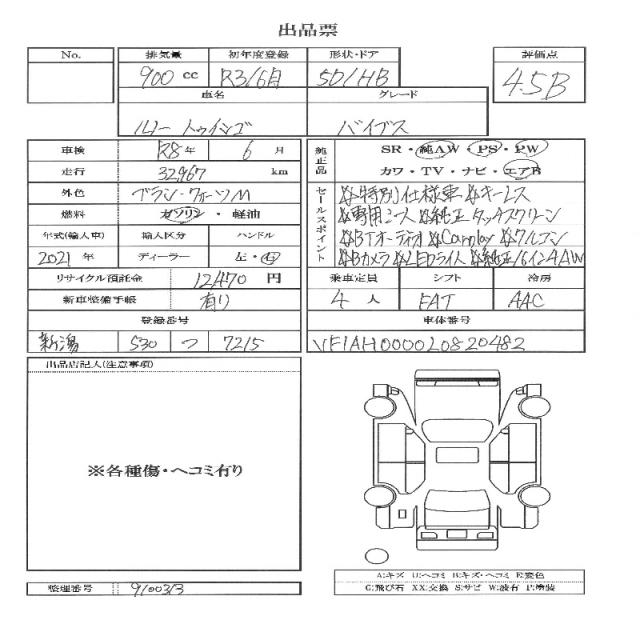 出品票
No. 排気量 初年度登録 形状・ドア 評価点
900 cc R3/6月 5D/HB 4.5B
車名 グレード
ルノー トゥインゴ バイブス
車検 R8年 6月 純正品 SR・純AW・PS・PW
走行 32,967 km カワ・TV・ナビ・エアB
外色 ブラン・クォーツM セールスポイント ☆特別仕様車☆キーレス
燃料 ガソリン・軽油 ☆専用シート☆純正タッチスクリーン
年式(輸入車) 輸入区分 ハンドル ☆BTオーディオ☆Carplay☆クルコン
2021年 ディーラー 左・右 ☆Bカメラ☆LEDライト☆純正16インチAW
リサイクル預託金 12,470円 乗車定員 シフト 冷房
新車整備手帳 有り 4人 FAT AAC
登録番号 車体番号
新潟 530 つ 7215 VF1AH000020820482
出品店記入(注意事項)
※各種傷・ヘコミ有り
A:キズ U:ヘコミ B:キズ・ヘコミ E:変色
G:飛び石 XX:交換 S:サビ W:波有 P:塗装
整理番号 91003/3